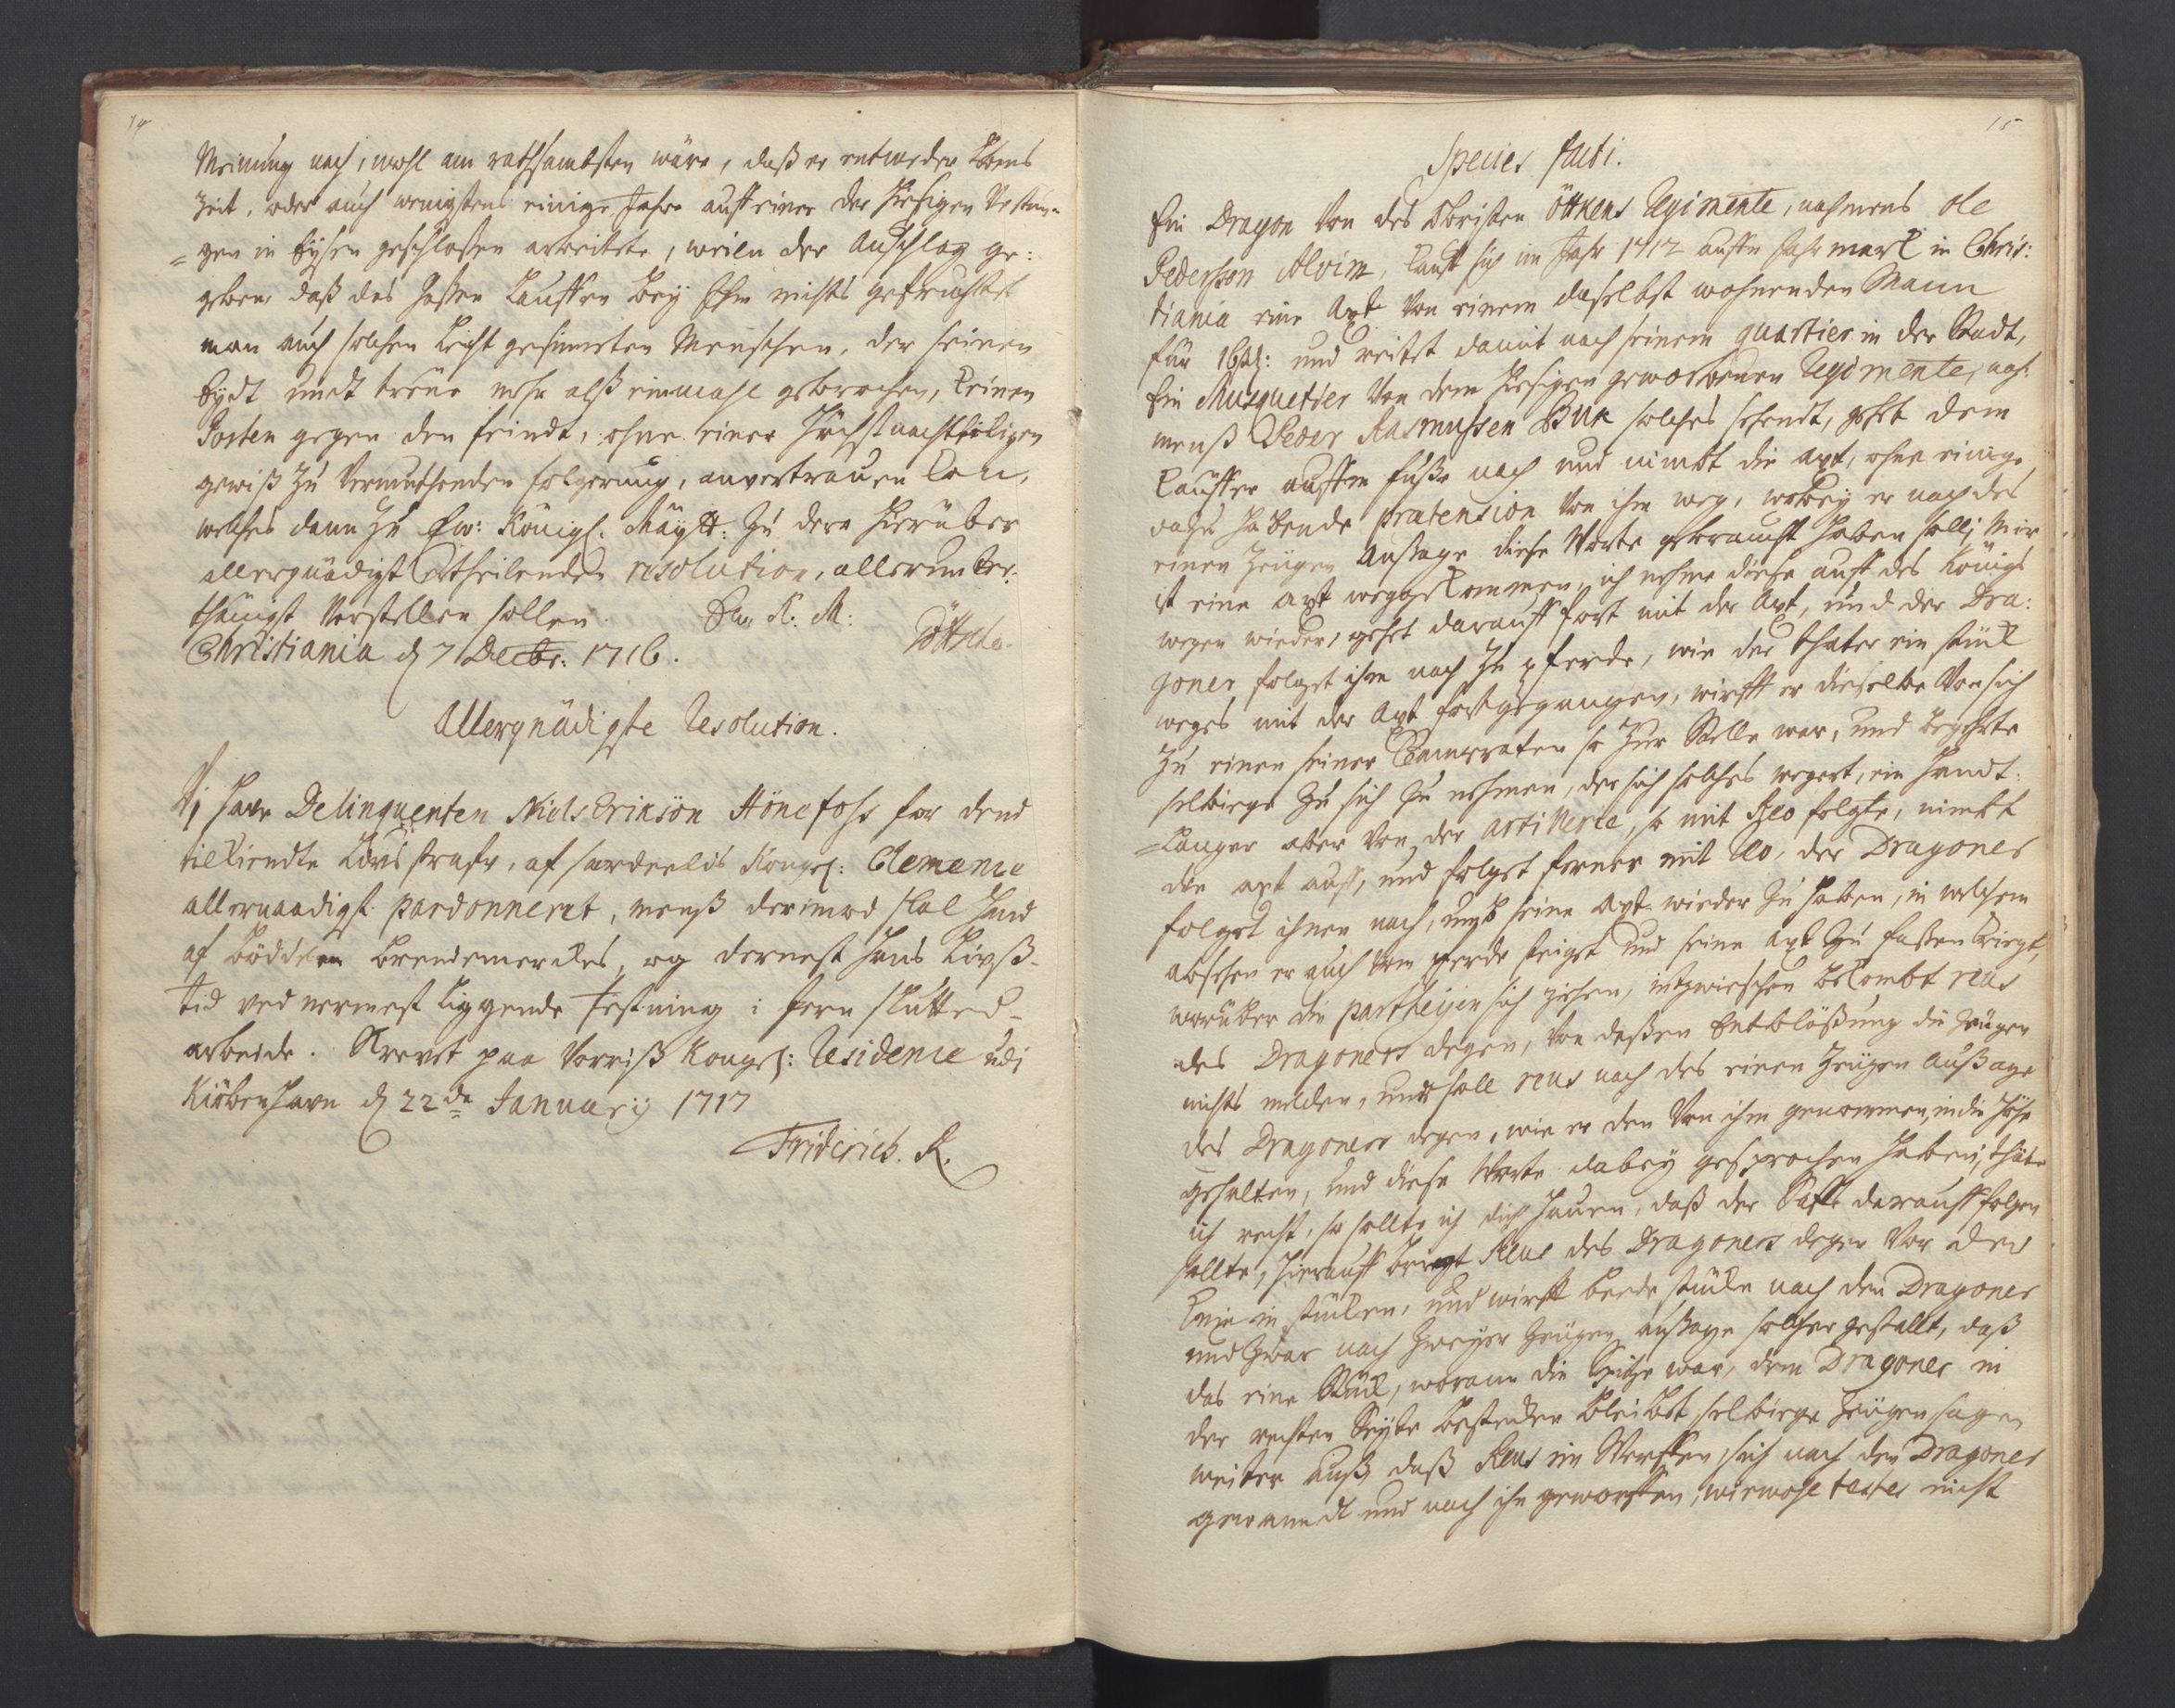 14
Meinung nach, wohl am rathsambsten wäre, daß er entweder Lebens
Zeit, oder auch wenigstens einige Jahre auff einer der hiesigen Vestun-
=gen in Eysen geschloßen arbeitete, weilen der Anschlag ge:
geben daß das Gaßen Lauffen bey Ihm nichts gefruchtet
man auch solchen Leicht gesinneten Menschen, der seinen
Eydt undt treue mehr alß einmahl gebrochen, keinen
Posten gegen den feindt, ohne einer höchst nachtheiligen
gewiß zu vermuthenden folgerung, anvertrauen kan,
welches dann zu Ew: Königl. Mäytt: zu dero hierüber
allergnädigst ertheilenden resolution, allerunter:
thänigst vorstellen sollen. Ew. K. M:
Christiania d 7 Decbr: 1716.
Allergnädigste Resolution.
Vi have Delinquenten Niels Eriksön Hönefoss for dend
tilkiendte Livs straffe, af særdeelis Kongel: Clemence
allernaadigst pardonneret, menß derimod skal hand
af bödelen brendemerkes, og dernest hans Livß-
tid ved nermest liggende Festning i Jern slutted
arbeide. Skrevet paa Vorriß Kongel: Residence udi
Kiöbenhavn d 22de Januarij 1717
Friderich. R.
15
Species facti.
Ein Dragon von des Obristen Ötkens Regimente, nahmens Ole
Pedersson Alvim, kaufft sich im Jahr 1712 auffn Jahrmarkt in Chris:
tiania eine Axt von einem daselbst wohnenden Mann
für 16 ß: und reitet damit nach seinem quartier in der Stadt,
Ein Musquetier von dem hiesigen geworbenen Regimente, nah:
menß Peder Rasmussen Buk solches sehendt, gehet dem
Käuffer auffm fuße nach und nimbt die axt, ohne einige
dazu habende prætension von ihm weg, wobey er nach des
einen Zeugen Außage diese Worte gebraucht haben soll; Mir
ist eine axt weggekommen, ich nehme diese auff des Königs
wegen wieder, gehet darauff fort mit der Axt, und der Dra:
goner folget ihm nach zu pferde, wie der thäter ein stück
weges mit der Axt fortgegangen, wirfft er dieselbe von sich
zu einen seiner Cammraten so zur Stelle war, und begehrte
selbige zu sich zu nehmen, der sich solches wegert, ein Handt:
=langer aber von der Artillerie, so mit Reo folgte, nimbt
die axt auff, und folget ferner mit Reo, der Dragoner
folget ihnen nach, umb seine Axt wieder zu haben, in welchem
absehen er auch vom pferde steiget und seine axt zu faßen kriegt,
worüber die partheyen sich ziehen, intzwischen bekombt reus
des Dragoners degen, von deßen Entblößung die Zeugen
nichts melden, undt soll reus nach des einen Zeugen Außage
des Dragoners degen, wie er den von ihm genommen, in die Höhe
gehalten, und diese Worte dabey gesprochen haben; thäte
ich recht, so sollte ich dich hauen, daß der Safft darauff folgen
sollte, hierauff bricht Reus des Dragoners degen vor den
Knie in stücken, und wirfft beede stücke nach den Dragoner
und zwar nach zweyer Zeugen außage solcher gestallt, daß
das eine Stück, woran die Spitze war, dem Dragoner in
der rechten Seyte bestecken bleibet, selbige Zeugen sagen
weiter auß daß Reus im Werffen sich nach den Dragoner
gewanndt und nach ihn geworffen, wiewohl testes nicht